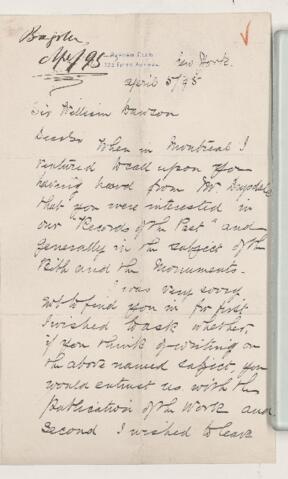 Bagster
Apl/95
722 Fifth Avenue
New York
April 5/95
Sir William Dawson
Dear Sir When in Montreal I
ventured to call upon you
having heard from Mr
that you were interested in
our "Records of the Past" and
generally in the subject of the
Bible and the Monuments -
I was very sorry
not to find you in for first
I wished to ask whether,
if you think of writing on
the above named subject, you
would entrust us with the
publication of the Work and
second I wished to leave